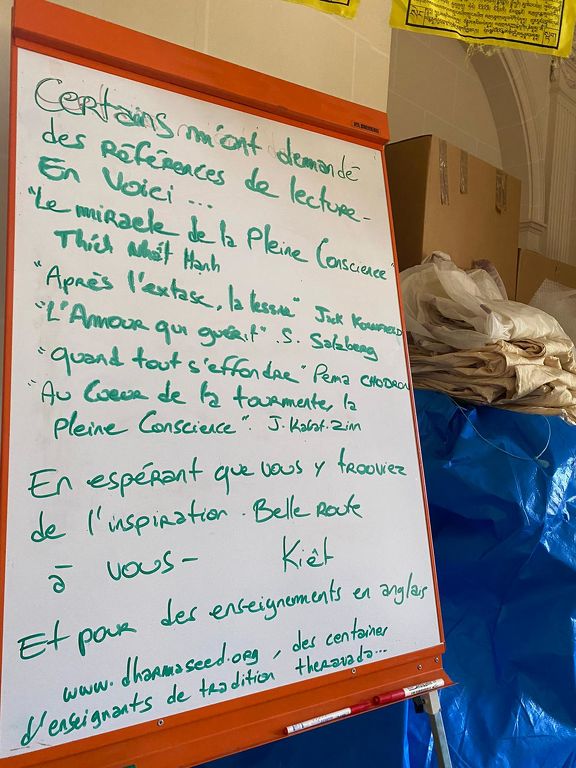 Certains m'ont demandé
des Références de lecture -
En Voici ...
"Le miracle de la Pleine Conscience"
Thich Nhất Hanh
"Après l'extase, la lessive" Jack KORNFIELD
"L'Amour qui guérit". S. Salzberg
"Quand tout s'effondre" Pema CHODRON
"Au Coeur de la tourmente, la
Pleine Conscience". J. Kabat. Zinn
En espérant que vous y trouviez
de l'inspiration. Belle Route
à vous - Kiêt
Et pour des enseignements en anglais
www.dharmaseed.org, des centaines
d'enseignants de tradition theravada...